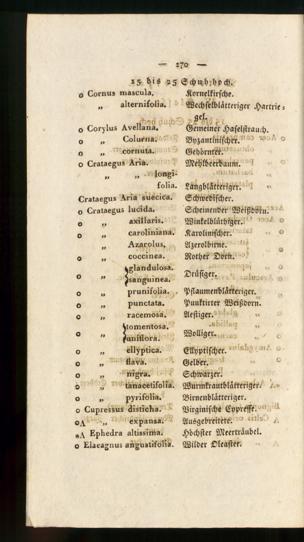 — 170 —
15 bis 25 Schuh hoch.
o Cornus mascula. Kornelkirsche.
„ alternifolia. Wechselblätteriger Hartrie-
gel.
o Corylus Avellana. Gemeiner Haselstrauch.
o „ Colurna. Byzantinischer.
o „ cornuta. Gehörnter.
o Crataegus Aria. Mehlbeerbaum.
„ „ longi-
folia. Langblätteriger.
Crataegus Aria suecica. Schwedischer.
o Crataegus lucida. Scheinender Weißdorn.
o „ axillaris. Winkelblüthiger.
o „ caroliniana. Karolinischer.
„ Azarolus. Azerolbirne.
o „ coccinea. Rother Dorn.
o „ glandulosa. Drüsiger.
sanguinea.
o „ prunifolia. Pflaumenblätteriger.
o „ punctata. Punktirter Weißdorn.
o „ racemosa. Aestiger.
o „ tomentosa. Wolliger.
uniflora.
o „ elliptica. Elliptischer.
o „ flava. Gelber.
o „ nigra. Schwarzer.
o „ tanacetifolia. Wurmkrautblätteriger.
o „ pyrifolia. Birnenblätteriger.
o Cupressus disticha. Virginische Cypresse.
o∆ „ expansa. Ausgebreitete.
*∆ Ephedra altissima. Höchster Meerträubel.
o Elaeagnus angustifolia. Wilder Oleaster.